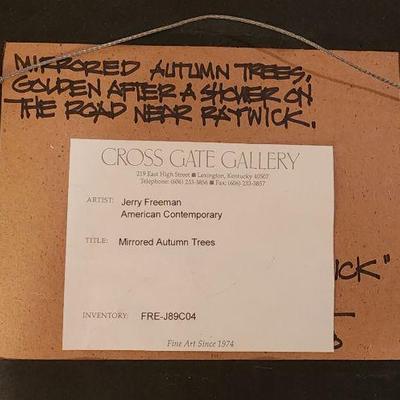 MIRRORED AUTUMN TREES,
GOLDEN AFTER A SHOWER ON
THE ROAD NEAR RAYWICK.
CROSS GATE GALLERY
219 East High Street ■ Lexington, Kentucky 40507
Telephone: (606) 233-3856 ■ Fax: (606) 233-3857
ARTIST: Jerry Freeman
American Contemporary
TITLE: Mirrored Autumn Trees
ICK"
INVENTORY: FRE-J89C04
Fine Art Since 1974